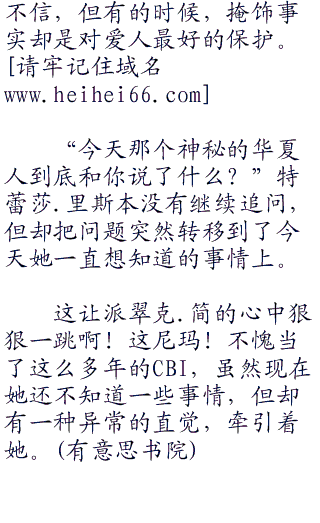 不信，但有的时候，掩饰事
实却是对爱人最好的保护。
[请牢记住域名
www.heihei66.com]
“今天那个神秘的华夏
人到底和你说了什么？”特
蕾莎.里斯本没有继续追问，
但却把问题突然转移到了今
天她一直想知道的事情上。
这让派翠克.简的心中狠
狠一跳啊！这尼玛！不愧当
了这么多年的CBI，虽然现在
她还不知道一些事情，但却
有一种异常的直觉，牵引着
她。(有意思书院)